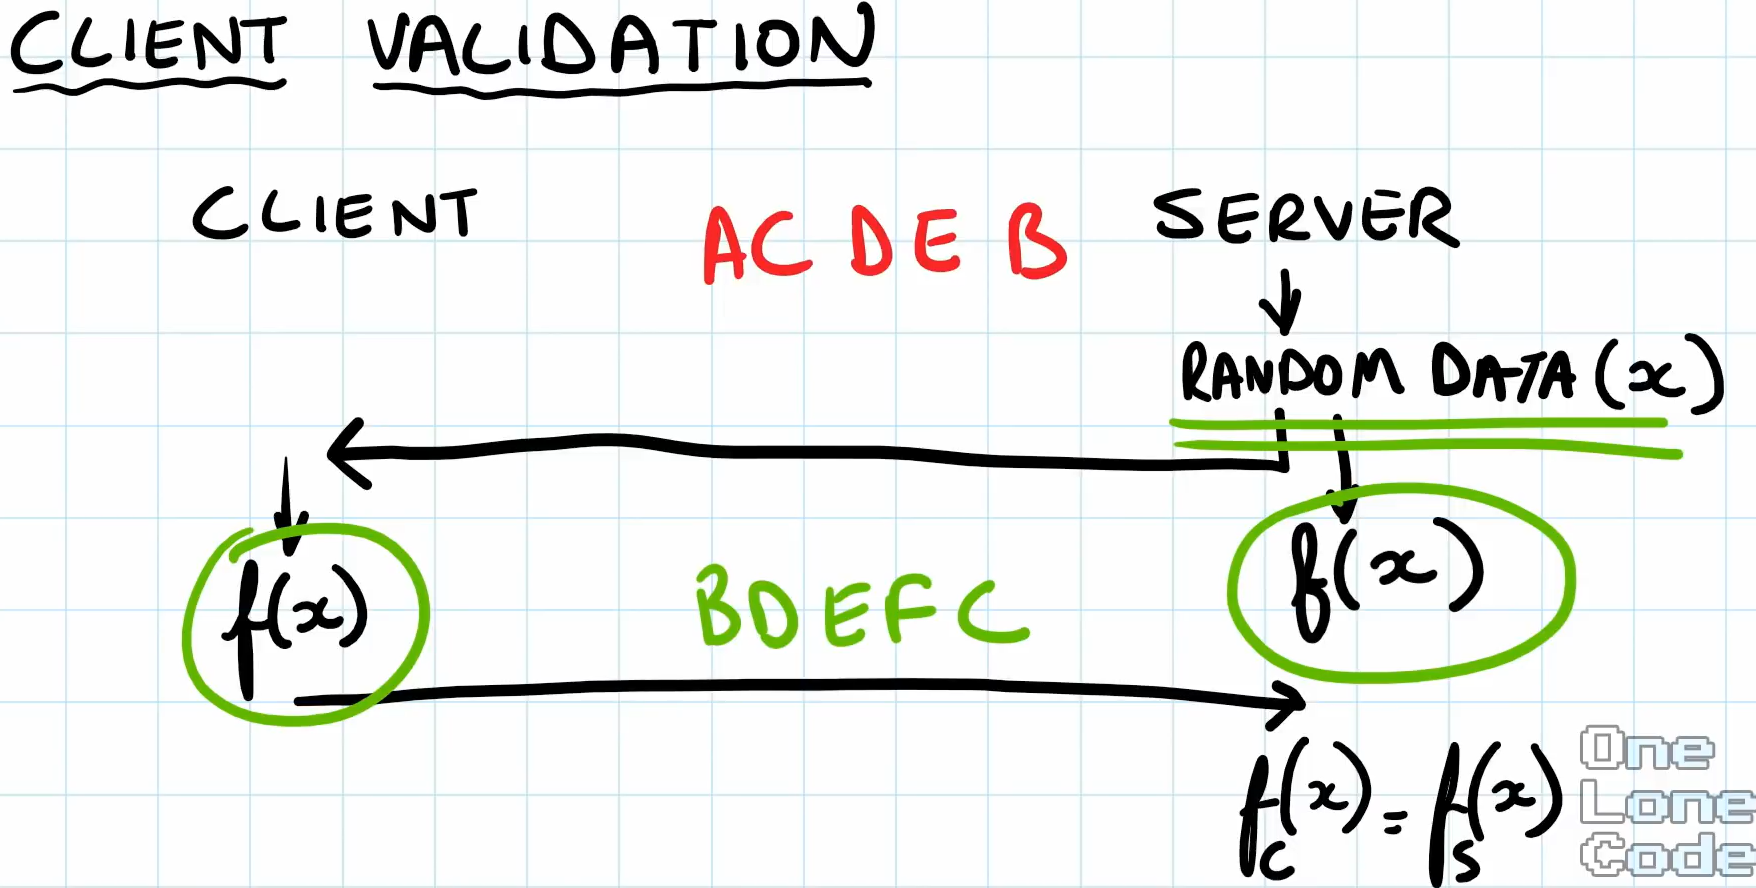 CLIENT VALIDATION
CLIENT
ACDEB
SERVER
RANDOM DATA (x)
f(x)
f(x)
BDEFC
f_C(x) = f_S(x)
One
Lone
Code